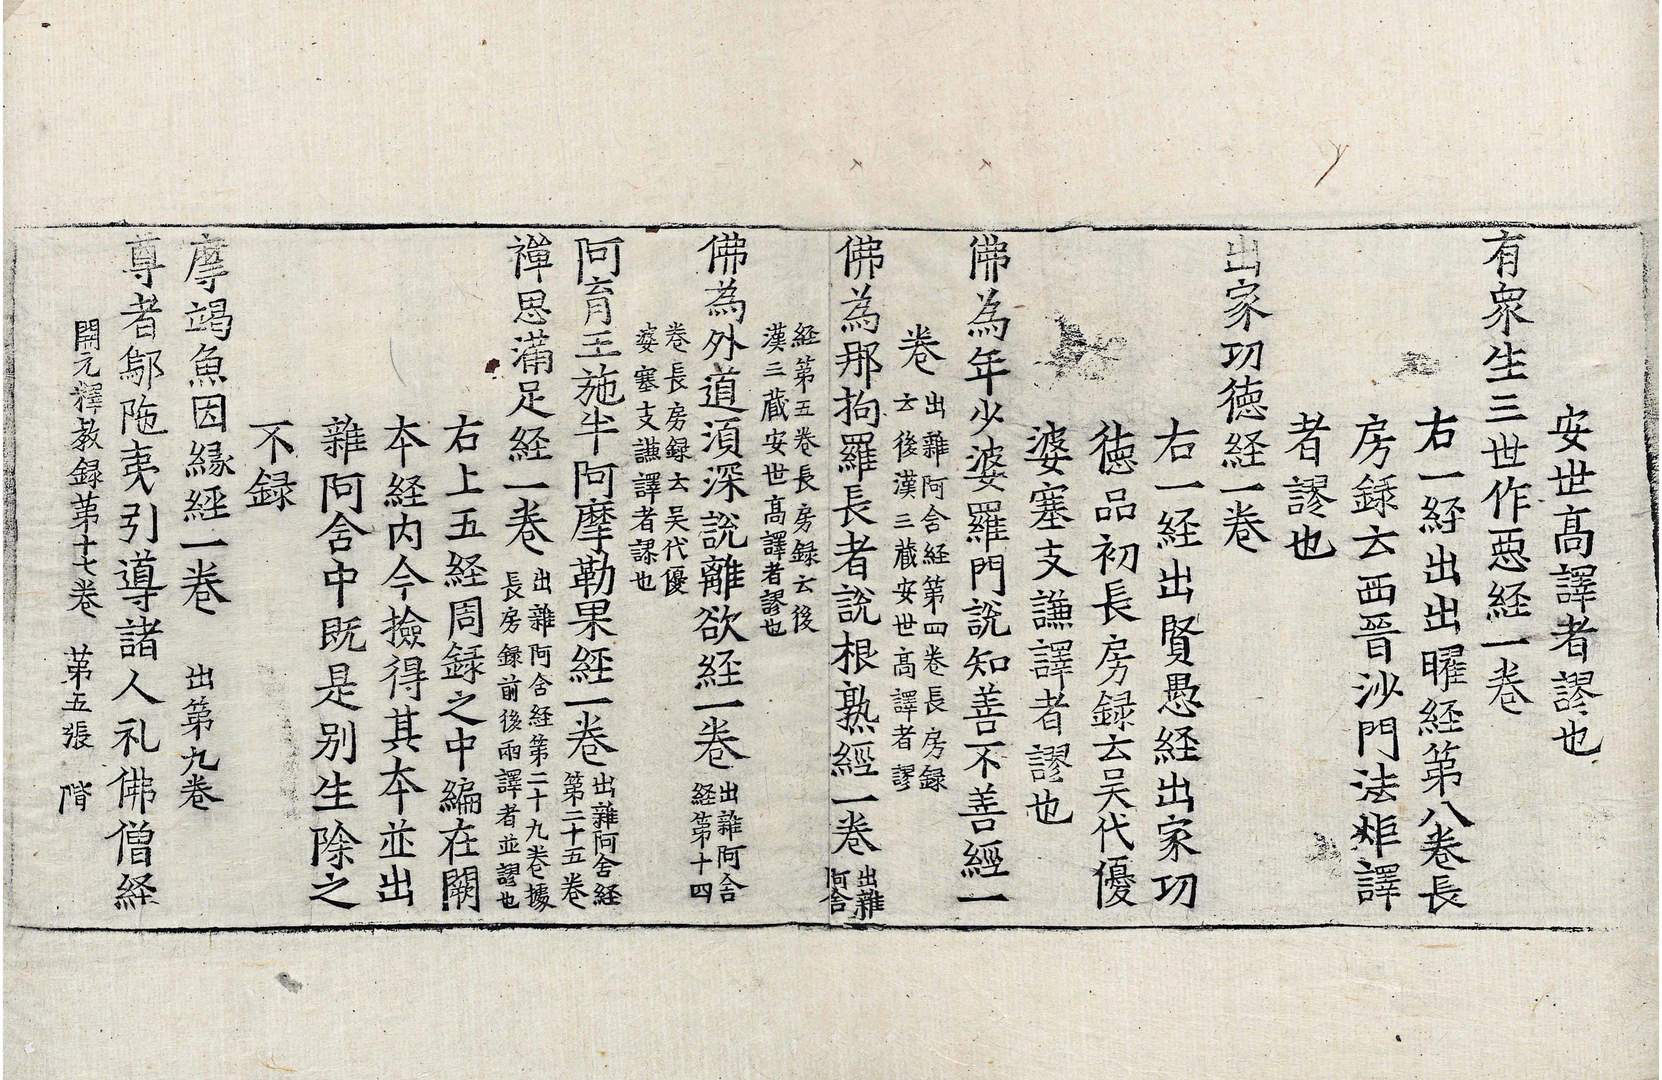 安世髙譯者謬也
有衆生三世作惡経一卷
右一経出出曜経第八卷長
房録云西晉沙門法炬譯
者謬也
出家功徳経一卷
右一経出賢愚経出家功
徳品初長房録云吴代優
婆塞支謙譯者謬也
佛為年少婆羅門説知善不善經一
卷 出雜阿舍経第四卷長房録
云後漢三藏安世髙譯者謬
佛為那拘羅長者説根熟經一卷 出雜
阿舍
経第五卷長房録云後
漢三藏安世髙譯者謬也
佛為外道湏深説離欲経一卷 出雜阿舍
経第十四
卷長房録云吴代優
婆塞支謙譯者謬也
阿育王施半阿摩勒果経一卷 出雜阿舍経
第二十五卷
禪思滿足経一卷 出雜阿舍経第二十九卷據
長房録前後兩譯者並謬也
右上五経周録之中編在闕
本経内今撿得其本並出
雜阿舍中既是别生除之
不録
摩竭魚因縁經一卷 出第九卷
尊者鄔陁夷引導諸人礼佛僧経
開元釋教録第十七卷 第五張 階